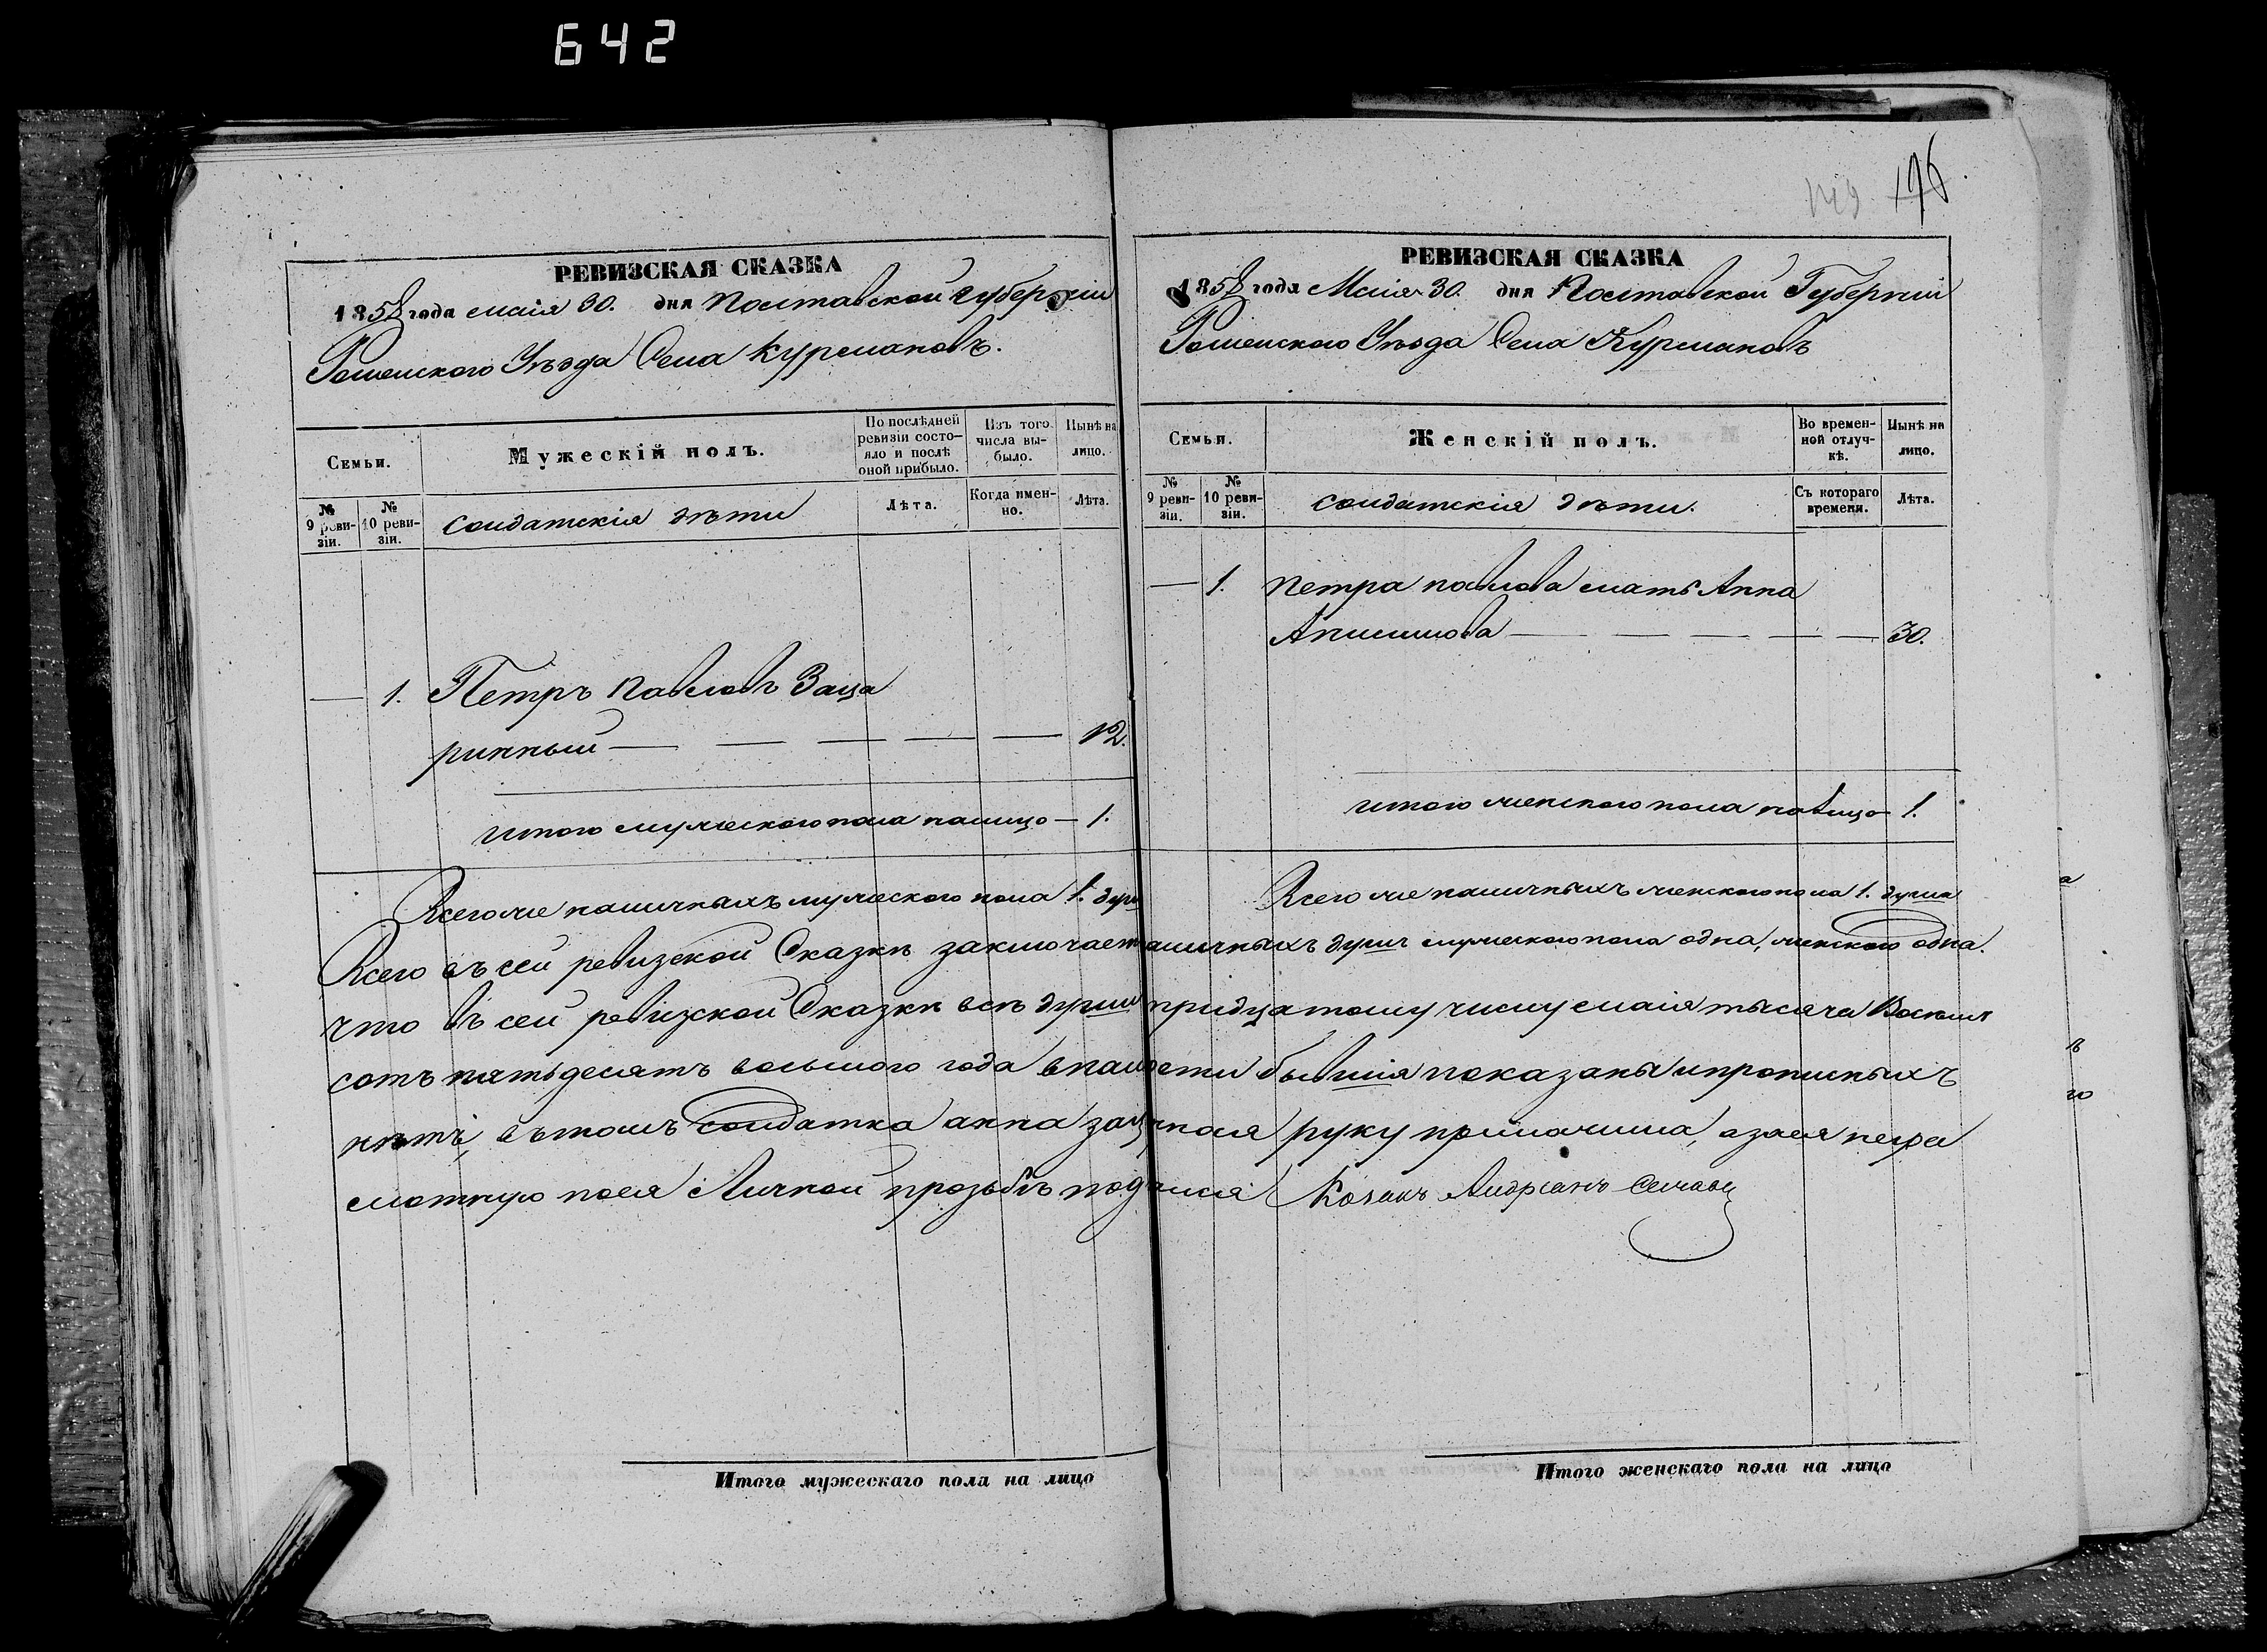 642
149 196
РЕВИЗСКАЯ СКАЗКА
1858 года маія 30. дня полтавской губерніи
Роменскаго Уѣзда Села Курмановъ.
Семьи.
Мужескій полъ.
По послѣдней ревизіи состояло и послѣ оной прибыло.
Изъ того числа выбыло.
Нынѣ на лицо.
№ 9 ревизіи.
№ 10 ревизіи.
солдатскія дѣти
Лѣта.
Когда именно.
Лѣта.
— 1. Петръ павловъ Заца
ринный — — — — — 12.
итого мужескаго пола налицо — 1.
Всего же наличныхъ мужескаго пола 1. душ
РЕВИЗСКАЯ СКАЗКА
1858 года Маія 30. дня Полтавской Губерніи
Роменскаго Уѣзда Села Курмановъ
Семьи.
Женскій полъ.
Во временной отлучкѣ.
Нынѣ на лицо.
№ 9 ревизіи.
№ 10 ревизіи.
солдатскія дѣти.
Съ котораго времени.
Лѣта.
— 1. петра павлова мать Анна
Анисимова — — — — — 30.
итого женского пола налицо 1.
Всего же наличныхъ женского пола 1. душа
Всего въ сей ревизской Сказкѣ заключает аличныхъ душъ мужескаго пола одна, женского одна.
что въ сей ревизской Сказкѣ всѣ души тридцатому числу маія тысяча Восемь
сотъ пятьдесятъ восьмого года внали ости бывшія показаны и прописныхъ
нѣтъ, въ томъ солдатка анна зац рная руку приложила, а за ея негра
мотную поея Личной прозьбѣ подписа Козакъ Андріанъ
Итого мужескаго пола на лицо
Итого женскаго пола на лицо